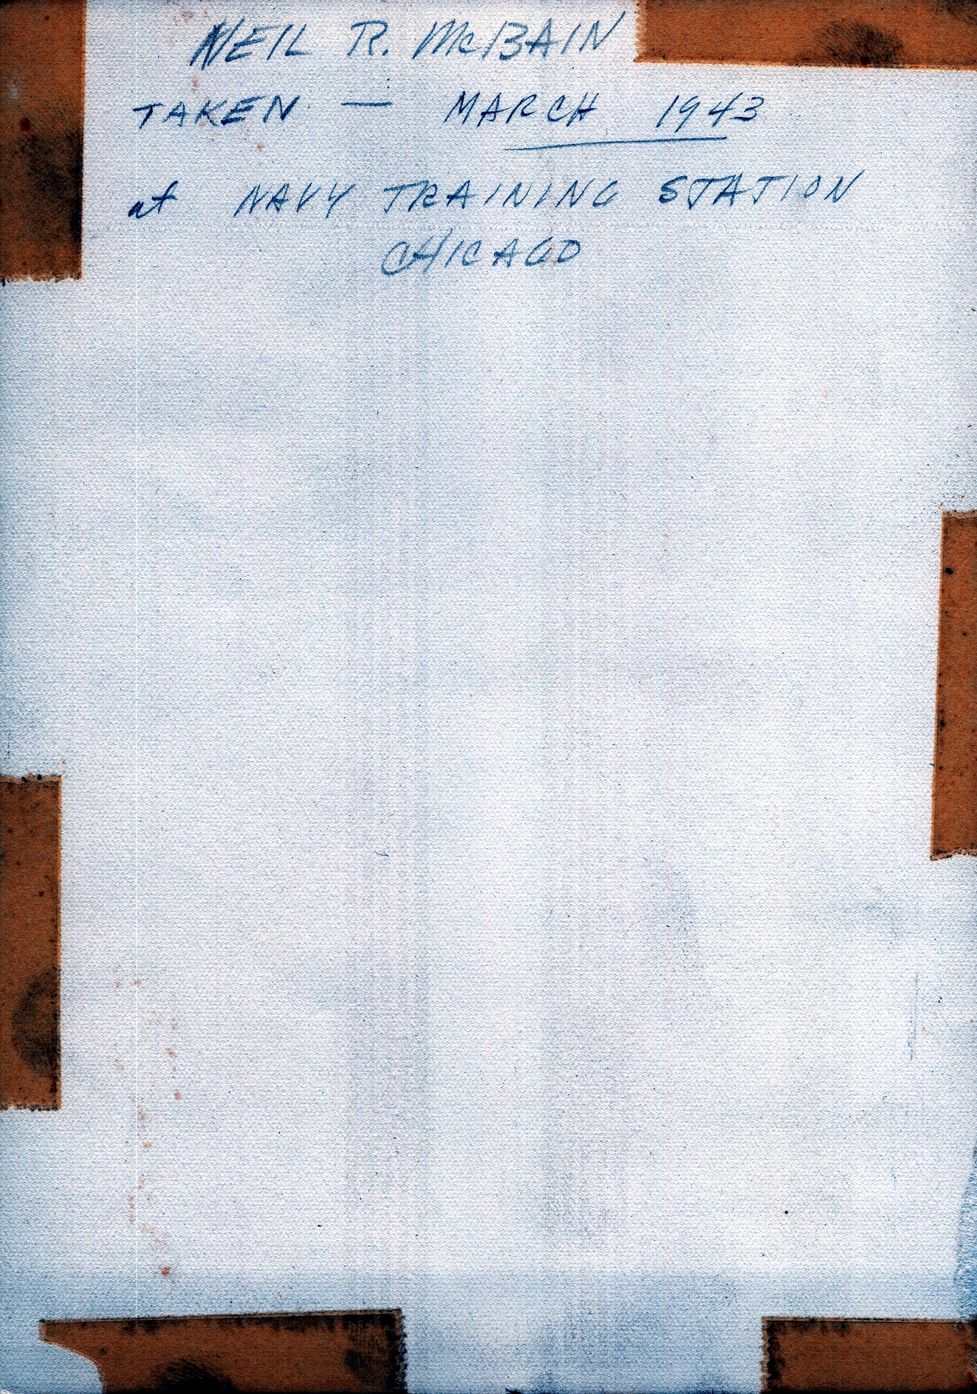 NEIL R. McBAIN
TAKEN — MARCH 1943
at NAVY TRAINING STATION
CHICAGO